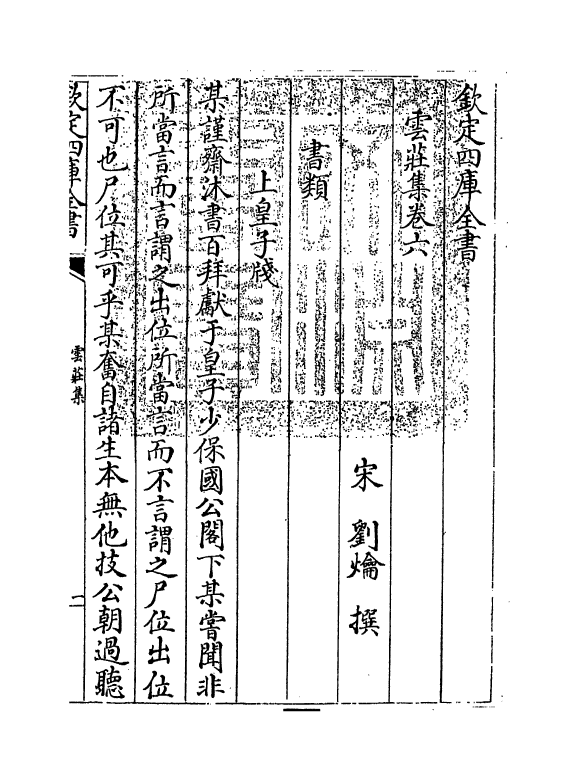 欽定四庫全書
雲莊集卷六
宋 劉爚 撰
書類
上皇子牋
某謹齋沐書百拜獻于皇子少保國公閤下某嘗聞非
所當言而言謂之出位所當言而不言謂之尸位出位
不可也尸位其可乎某奮自諸生本無他技公朝過聽
欽定四庫全書
雲莊集